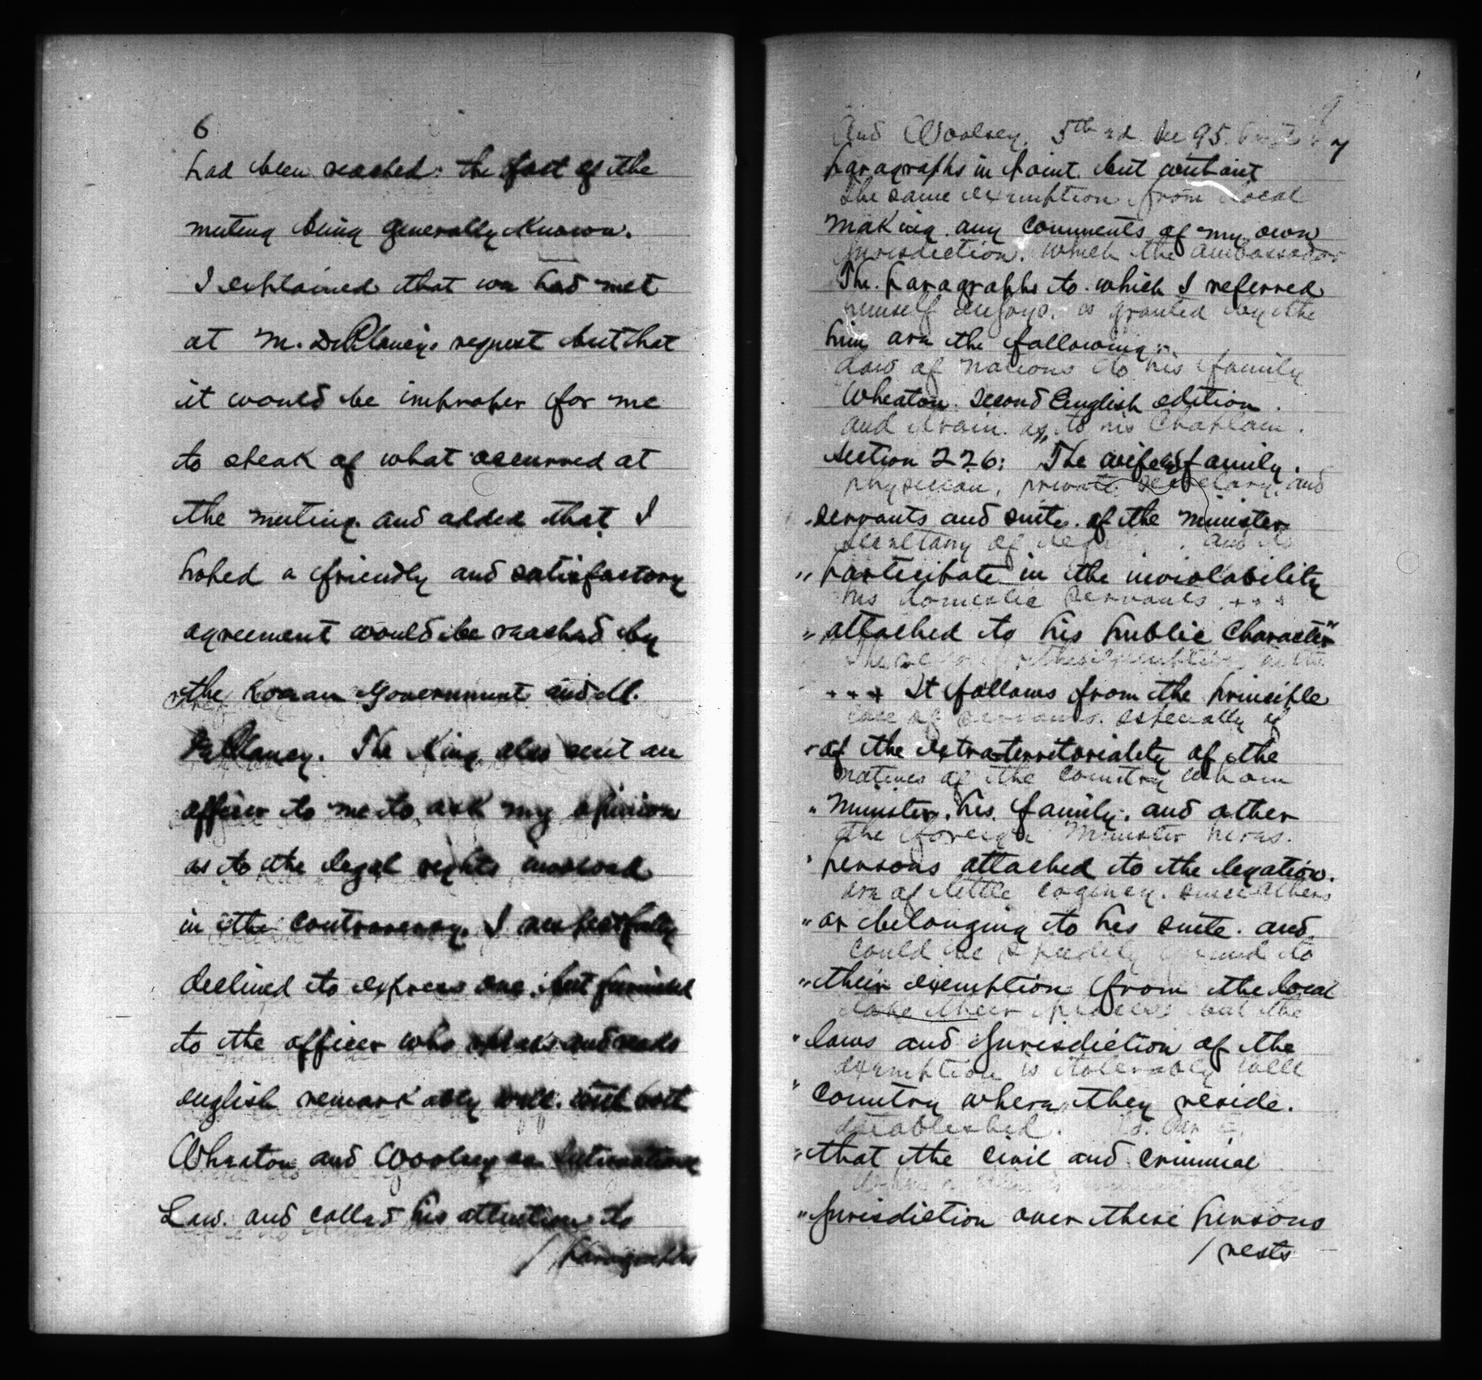 6
had been reached: the fact of the
meeting being generally known.
I explained that we had met
at M. De Plancy's request but that
it would be improper for me
to speak of what occurred at
the meeting and added that I
hoped a friendly and satisfactory
agreement would be reached by
the Korean Government and M.
De Plancy. The King also sent an
officer to me to ask my opinion
as to the legal rights involved
in the controversy. I respectfully
declined to express one, but furnished
to the officer who speaks and reads
english remarkably well. with both
Wheaton and Woolsey on International
Law. and called his attention to
/ paragraphs
7
And Woolsey. 5th ed. Sec 95.
paragraphs in point. but without
the same exemption from local
making any comments of my own
jurisdiction. which the ambassador
The paragraphs to which I referred
himself enjoys. is granted by the
him are the following:
Law of nations to his family
Wheaton. Second English edition.
and train. as to his Chaplain.
Section 226: The wife & family.
physician, private secretary. and
"servants and suite. of the Minister
secretary of and to
" participate in the inviolability
his domestic servants. + + +
" attached to his public character"
The
+ + + It follows from the principle
case of servants. especially if
"of the extraterritoriality of the
natives of the country whom
" Minister. his family. and other
the foreign Minister hires.
" persons attached to the legation.
are of little cogency. since others
"or belonging to his suite. and
could be speedily found to
"their exemption from the local
take their places but the
"laws and jurisdiction of the
exemption is tolerably well
" Country where they reside.
established.
"that the civil and criminal
"jurisdiction over these persons
/ rests